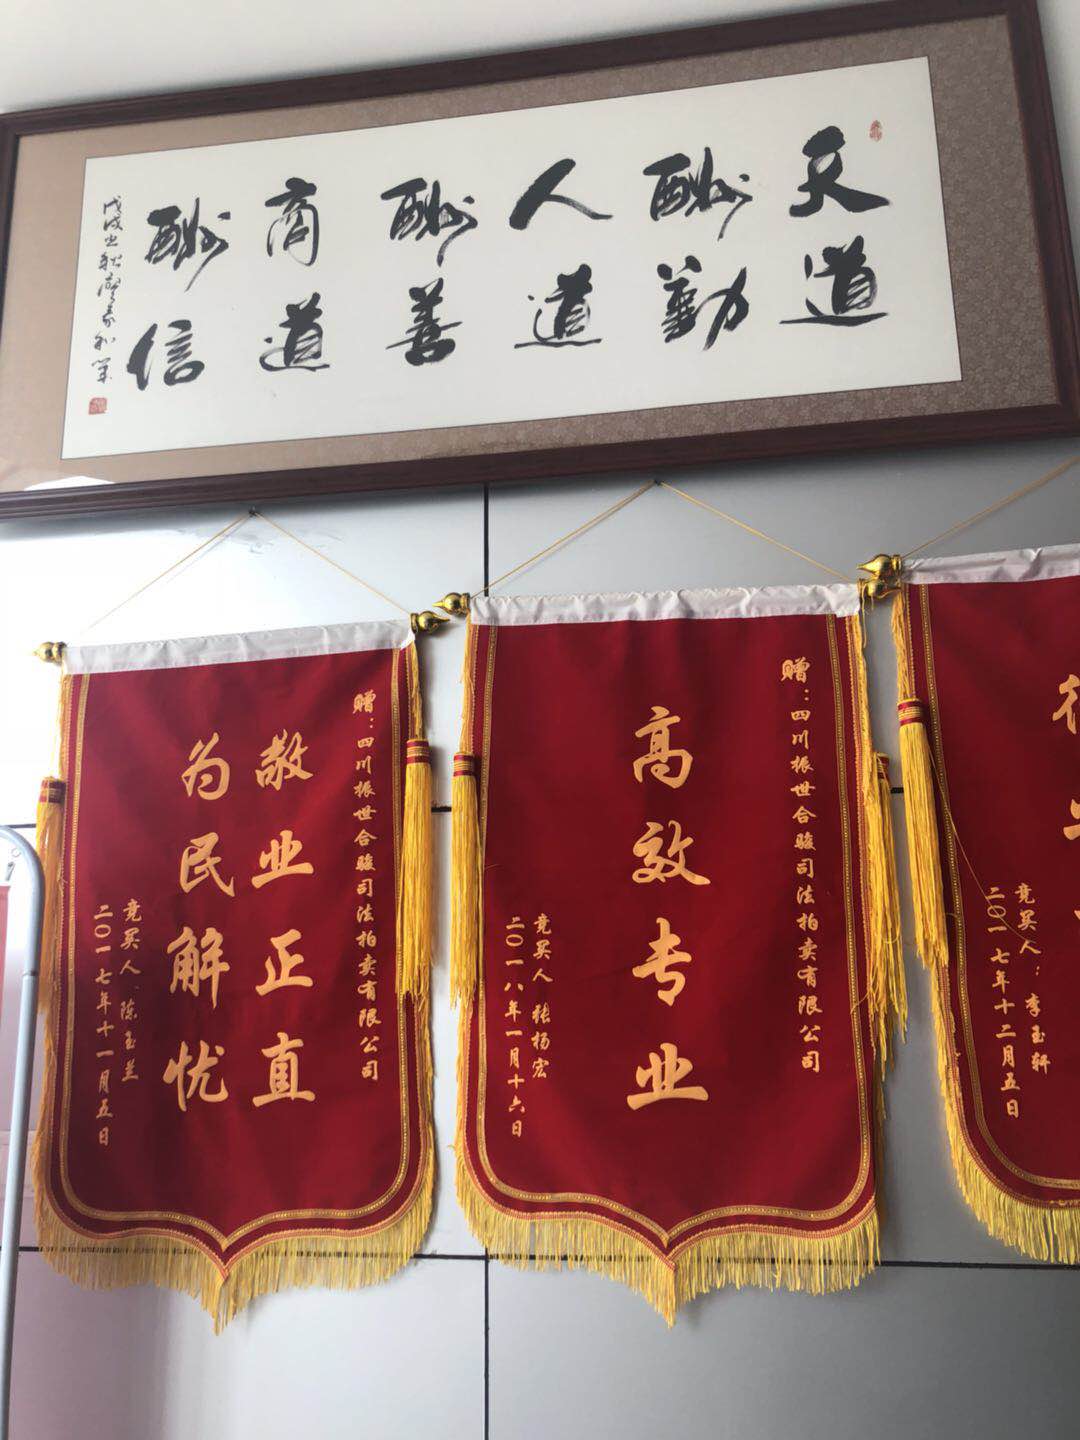 天道
酬勤
人道
酬善
商道
酬信
戊戌之秋
赠：四川振世合骏司法拍卖有限公司
敬业正直
为民解忧
竞买人：陈玉兰
二〇一七年十一月五日
赠：四川振世合骏司法拍卖有限公司
高效专业
竞买人：张杨宏
二〇一八年一月十六日
竞买人：李玉轩
二〇一七年十二月五日